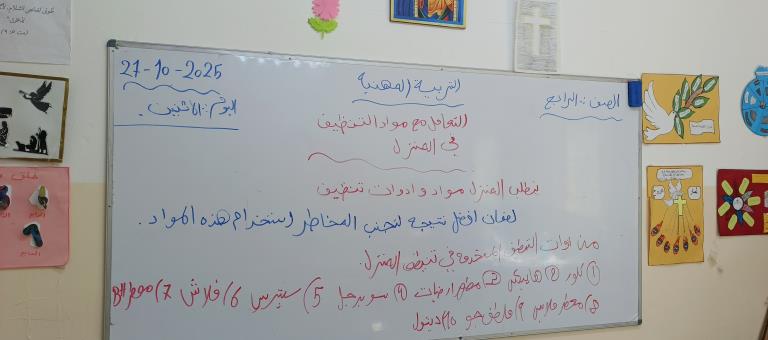 27-10-2025
التربية المهنية
الصف: الرابع
اليوم: الاثنين.
التعامل مع مواد التنظيف
في المنزل
يتطلب المنزل مواد وادوات تنظيف
لضمان افضل نتيجة لتجنب المخاطر استخدام هذه المواد.
من ادوات التنظيف المستخدمة في تنظيف المنزل.
① كلور ② هايبكس ③ مطهر ارضيات ④ سوبرجل 5) ستيرس 6) فلاش 7) معطر
8) معطر ملابس 9) ملطف جو 10) ديتول